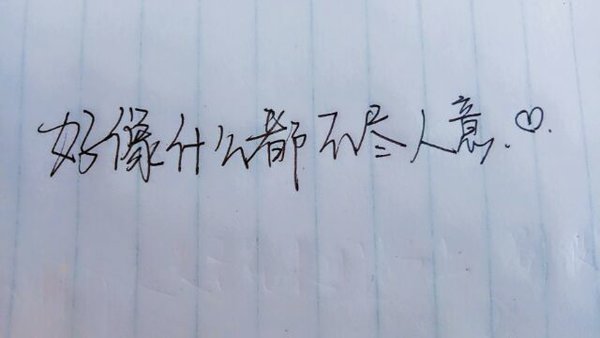 好像什么都不尽人意.♡.